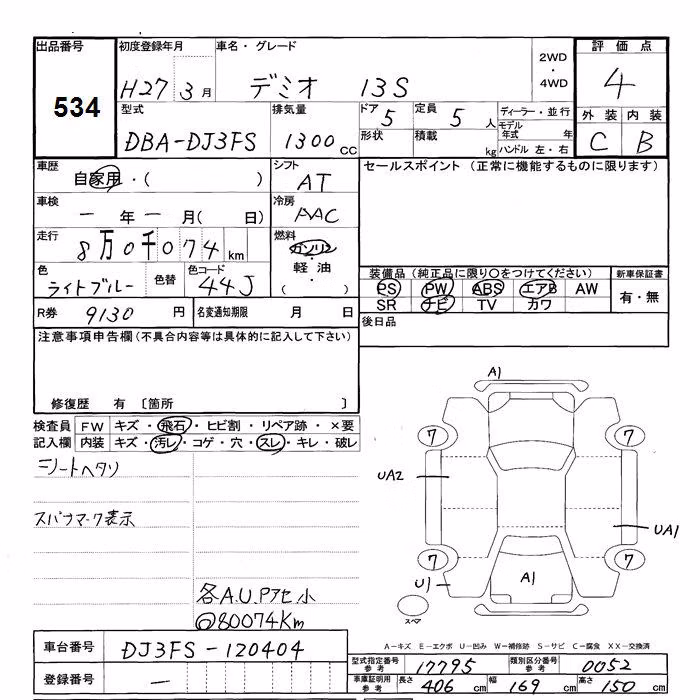 出品番号
534
初度登録年月
H27年3月
車名・グレード
デミオ 13S
2WD
・
4WD
評価点
4
型式
DBA-DJ3FS
排気量
1300cc
ドア
5
定員
5人
ディーラー・並行
モデル年式 年
外装 内装
C B
形状
積載 kg
ハンドル 左・右
車歴
自家用・( )
シフト
AT
セールスポイント (正常に機能するものに限ります)
車検
ー年ー月( 日)
冷房
AAC
走行
8万0千074km
燃料
ガソリン
・
軽油
・
( )
色
ライトブルー
色替
色コード
44J
装備品 (純正品に限り○をつけてください)
新車保証書
PS PW ABS エアB AW
有・無
SR ナビ TV カワ
R券 9130円
名変通知期限 月 日
後日品
注意事項申告欄 (不具合内容等は具体的に記入して下さい)
修復歴 有 〔箇所 〕
検査員記入欄
FW キズ・飛石・ヒビ割・リペア跡・×要
内装 キズ・汚レ・コゲ・穴・スレ・キレ・破レ
シートヘタリ
スパナマーク表示
各A.U.Pアセ小
@80074Km
A1
7 7
UA2
UA1
7 7
U1
A1
スペア
A-キズ E-エクボ U-凹み W-補修跡 S-サビ C-腐食 XX-交換済
車台番号
DJ3FS-120404
登録番号
ー
型式指定番号
参考
17795
類別区分番号
参考
0052
車庫証明用
参考
長さ 406cm
幅 169cm
高さ 150cm